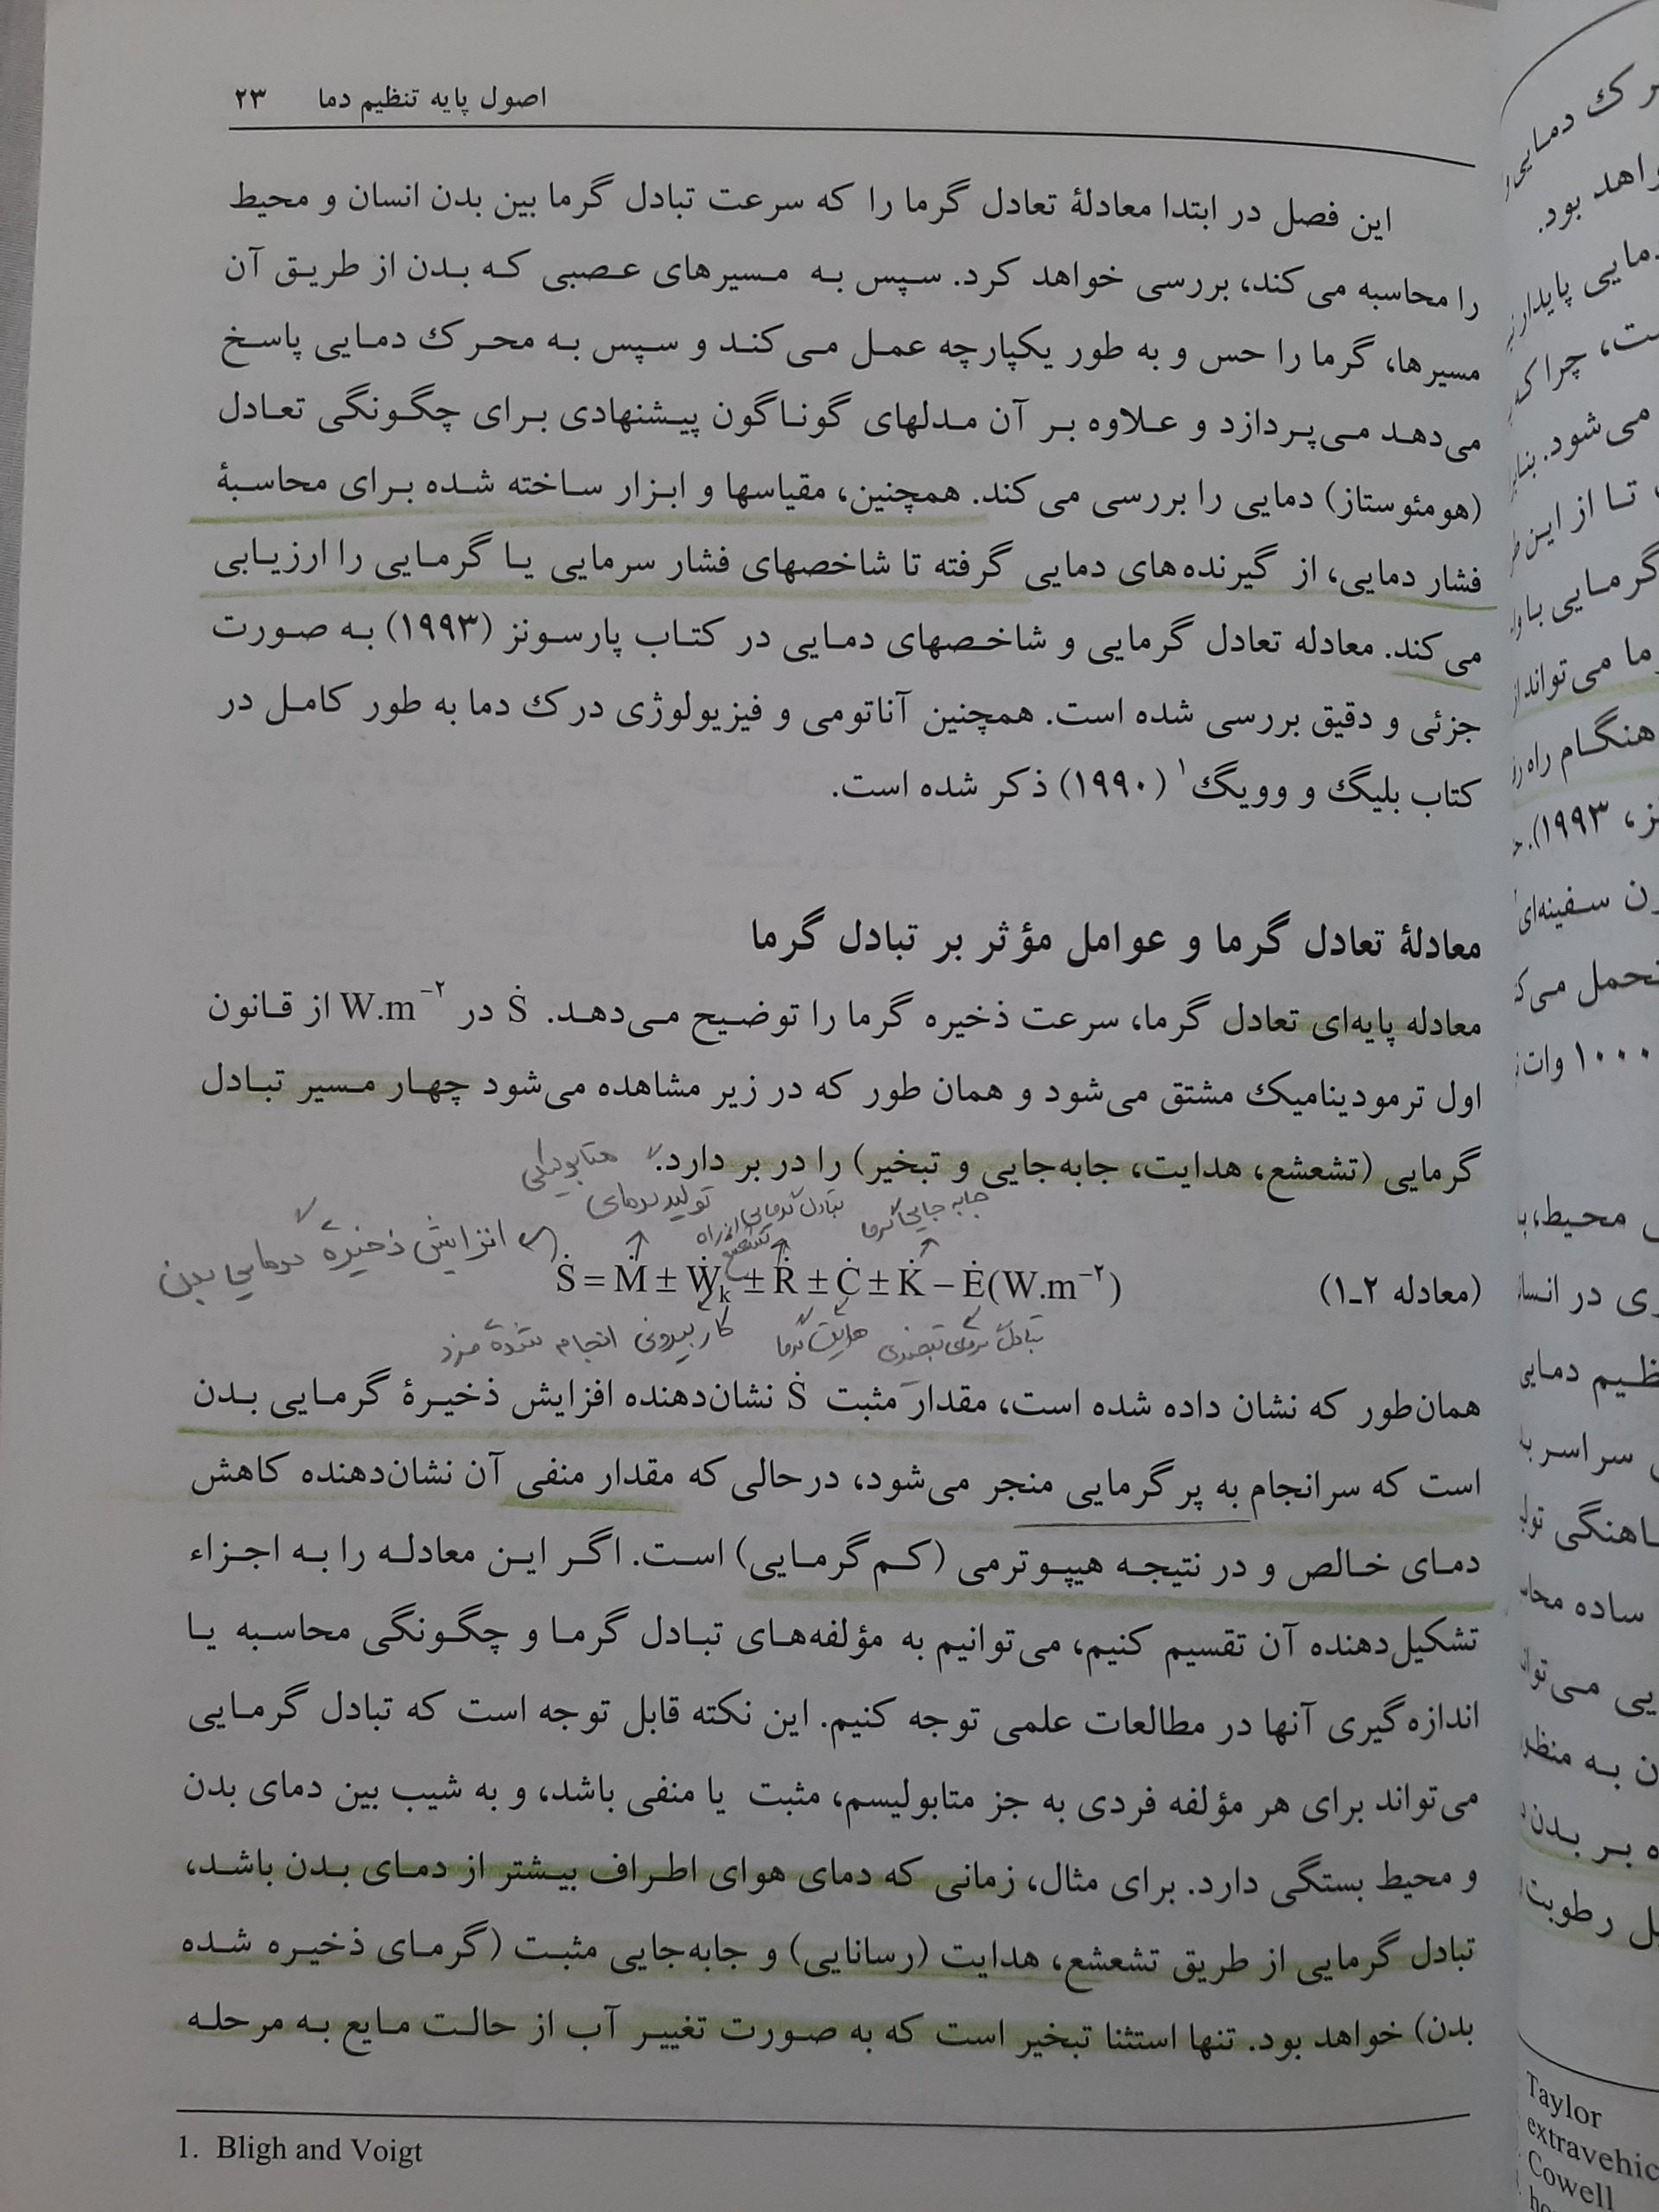 اصول پایه تنظیم دما ۲۳
این فصل در ابتدا معادلهٔ تعادل گرما را که سرعت تبادل گرما بین بدن انسان و محیط
را محاسبه می‌کند، بررسی خواهد کرد. سپس به مسیرهای عصبی که بدن از طریق آن
مسیرها، گرما را حس و به طور یکپارچه عمل می‌کند و سپس به محرک دمایی پاسخ
می‌دهد می‌پردازد و علاوه بر آن مدلهای گوناگون پیشنهادی برای چگونگی تعادل
(هومئوستاز) دمایی را بررسی می‌کند. همچنین، مقیاسها و ابزار ساخته شده برای محاسبهٔ
فشار دمایی، از گیرنده‌های دمایی گرفته تا شاخصهای فشار سرمایی یا گرمایی را ارزیابی
می‌کند. معادله تعادل گرمایی و شاخصهای دمایی در کتاب پارسونز (۱۹۹۳) به صورت
جزئی و دقیق بررسی شده است. همچنین آناتومی و فیزیولوژی درک دما به طور کامل در
کتاب بلیگ و وویگ۱ (۱۹۹۰) ذکر شده است.
معادلهٔ تعادل گرما و عوامل مؤثر بر تبادل گرما
معادله پایه‌ای تعادل گرما، سرعت ذخیره گرما را توضیح می‌دهد. Ṡ در W.m⁻² از قانون
اول ترمودینامیک مشتق می‌شود و همان طور که در زیر مشاهده می‌شود چهار مسیر تبادل
گرمایی (تشعشع، هدایت، جابه‌جایی و تبخیر) را در بر دارد.
متابولیکی
تولید گرمای
تبادل گرمایی از راه
تشعشع
جابه جایی گرما
افزایش ذخیرهٔ گرمایی بدن
Ṡ = Ṁ ± Ẇk ± Ṙ ± Ċ ± K̇ − Ė(W.m⁻²) (معادله ۲ـ۱)
کار بیرونی انجام شدهٔ فرد
هدایت گرما
تبادل گرمای تبخیری
همان‌طور که نشان داده شده است، مقدار مثبت Ṡ نشان‌دهنده افزایش ذخیرهٔ گرمایی بدن
است که سرانجام به پر گرمایی منجر می‌شود، درحالی که مقدار منفی آن نشان‌دهنده کاهش
دمای خالص و در نتیجه هیپوترمی (کم گرمایی) است. اگر این معادله را به اجزاء
تشکیل‌دهنده آن تقسیم کنیم، می‌توانیم به مؤلفه‌های تبادل گرما و چگونگی محاسبه یا
اندازه‌گیری آنها در مطالعات علمی توجه کنیم. این نکته قابل توجه است که تبادل گرمایی
می‌تواند برای هر مؤلفه فردی به جز متابولیسم، مثبت یا منفی باشد، و به شیب بین دمای بدن
و محیط بستگی دارد. برای مثال، زمانی که دمای هوای اطراف بیشتر از دمای بدن باشد،
تبادل گرمایی از طریق تشعشع، هدایت (رسانایی) و جابه‌جایی مثبت (گرمای ذخیره شده
بدن) خواهد بود. تنها استثنا تبخیر است که به صورت تغییر آب از حالت مایع به مرحله
1. Bligh and Voigt
دمایی پایدار
می‌شود.
تا از این
گرمایی با
می‌تواند
هنگام راه
۱۹۹۳).
سفینه‌ای
۱۰۰۰ وات
محیط،
سراسر
ساده
به منظور
بر بدن
رطوبت
Taylor
extravehic
Cowell